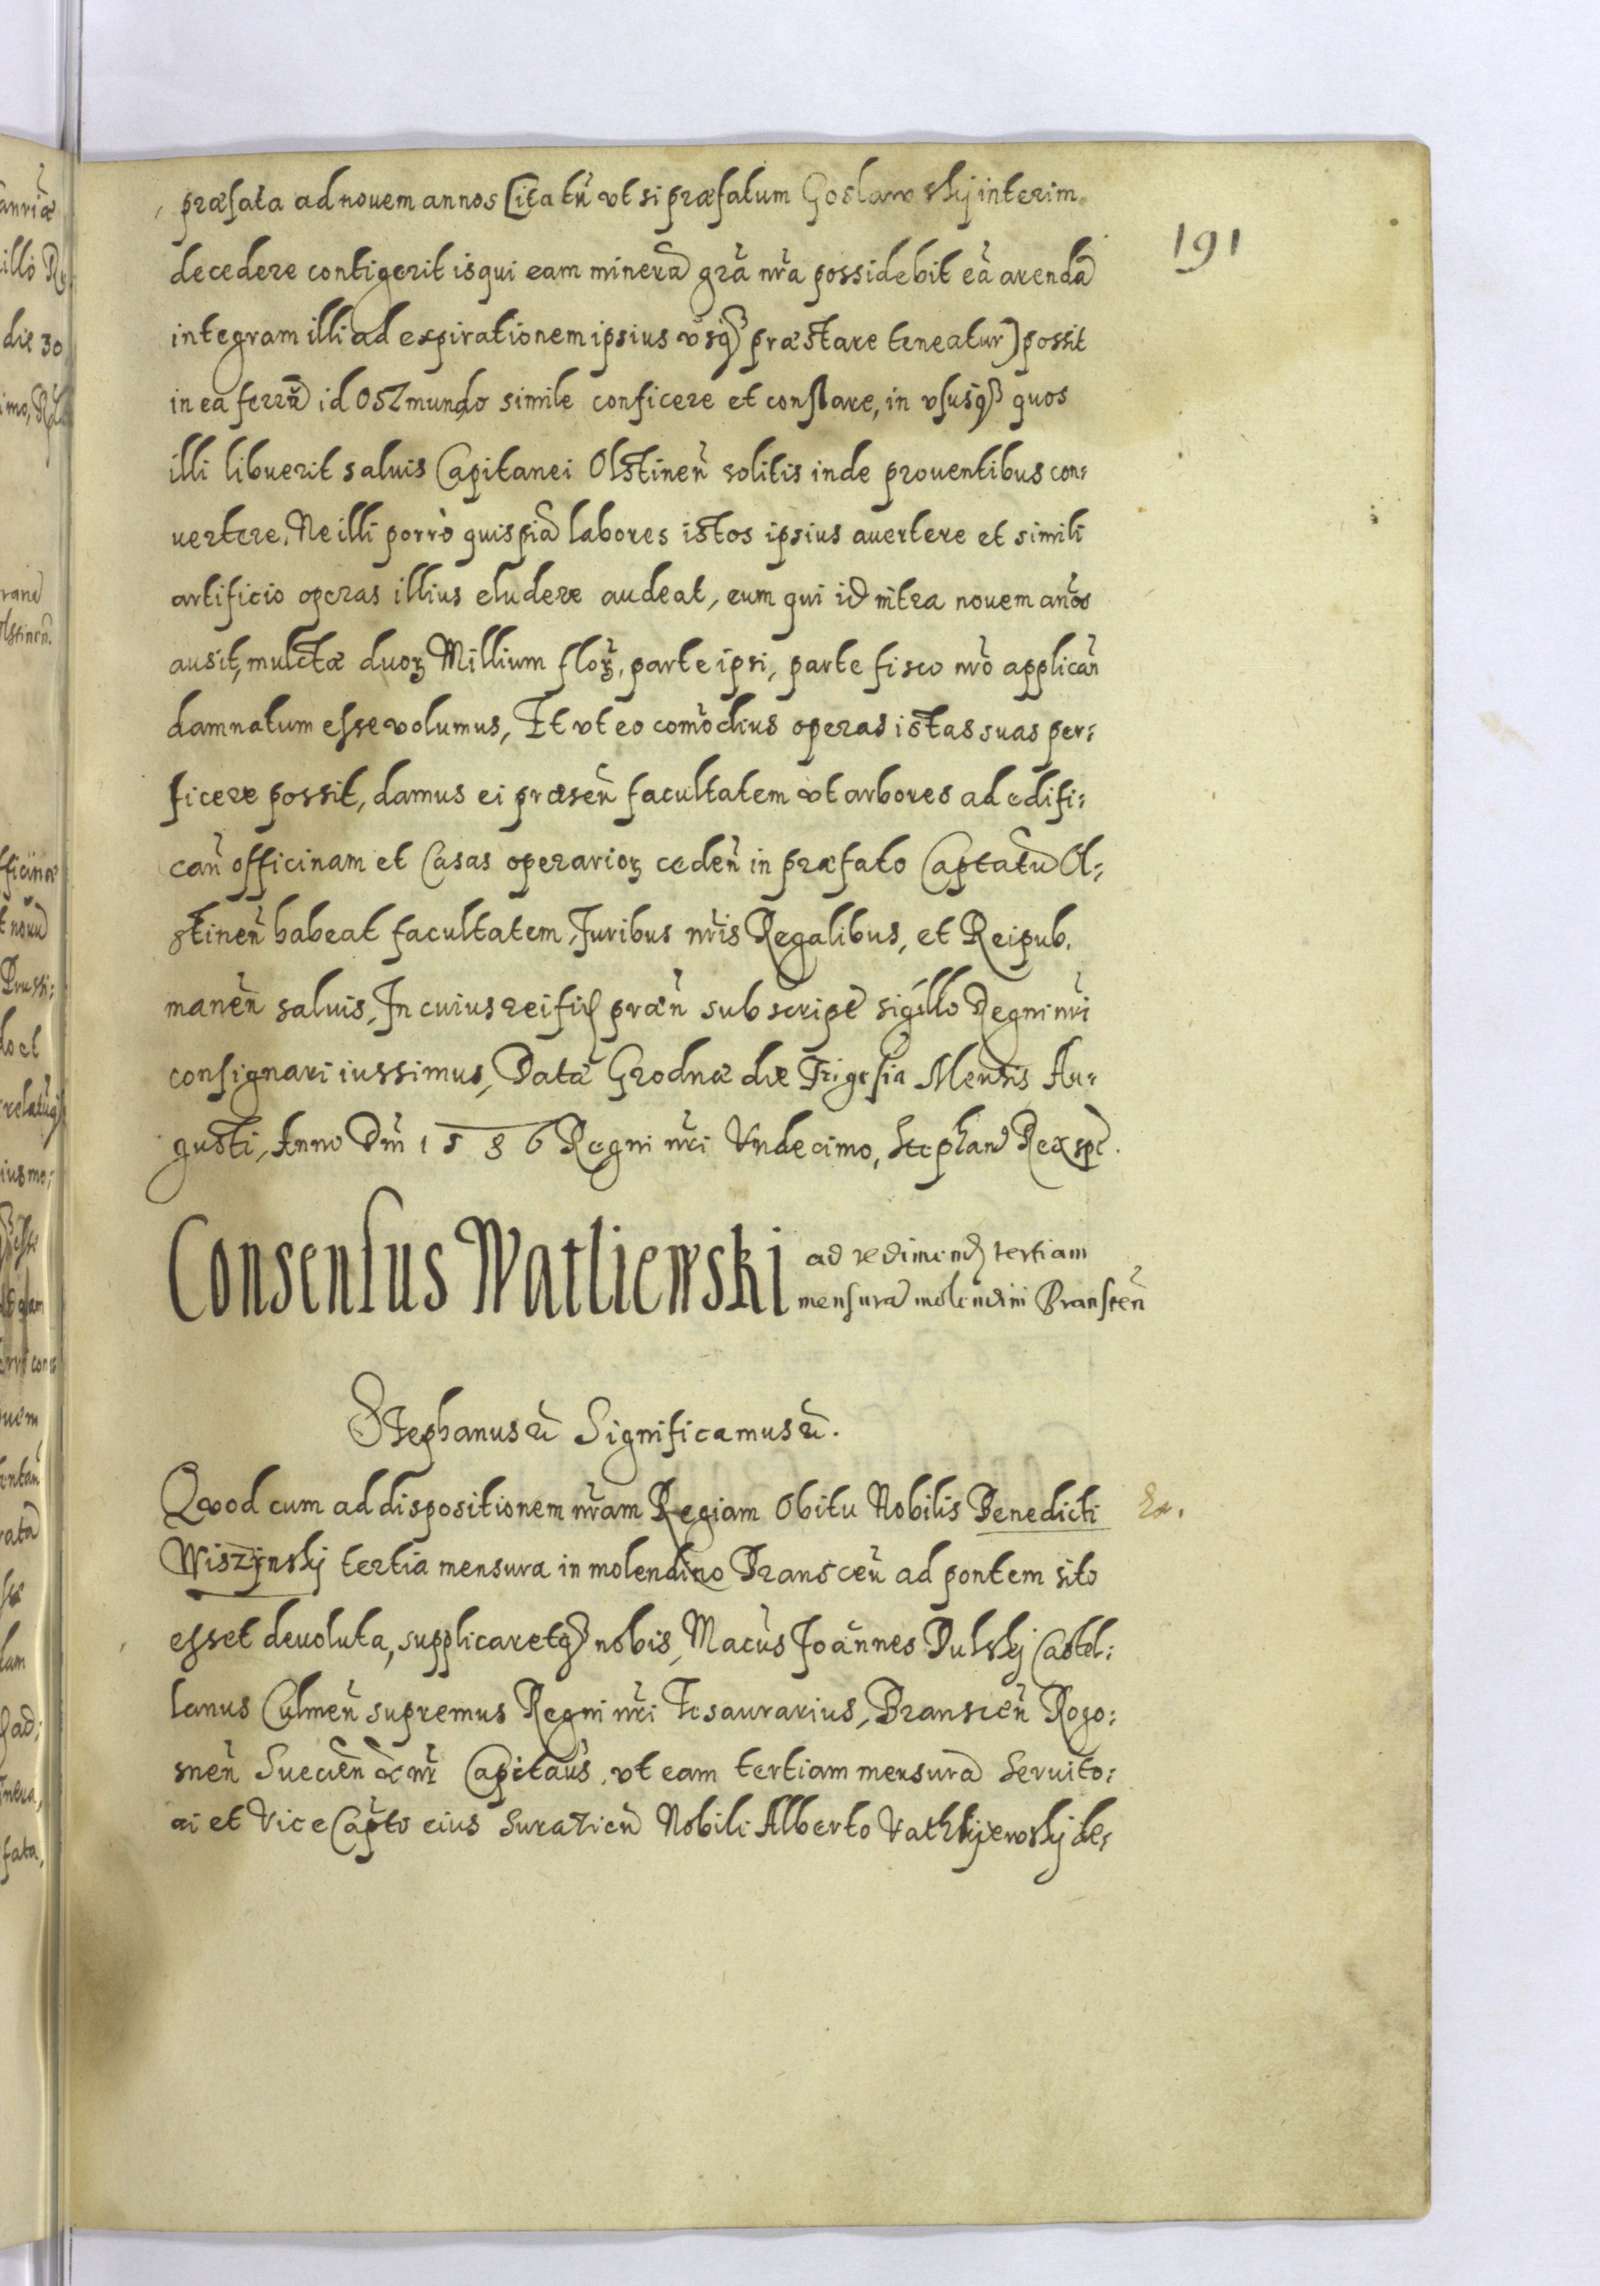 præfata ad nouem annos [ita tn̄ vt si præfatum Goslawskij interim
191
decedere contigerit is qui eam minerā grā nr̄a possidebit eā arendā
integram illi ad expirationem ipsius vsq₃ præstare teneatur] possit
in ea ferrū id Oszmundo simile conficere et conflare, in vsusq₃ quos
illi libuerit saluis Capitanei Olstinen̄ solitis inde prouentibus con:
uertere. Ne illi porrò quispiā labores istos ipsius auertere et simili
artificio operas illius eludere audeat, eum qui id intra nouem an̄os
ausit, mulctæ duoꝝ Millium floꝝ, parte ipsi, parte fisco nr̄o applican̄
damnatum esse volumus, Et vt eo com̄odius operas istas suas per:
ficere possit, damus ei præsen̄ facultatem vt arbores ad edifi:
can̄ officinam et Casas operarioꝝ ceden̄ in præfato Captatu Ol:
stinen̄ habeat facultatem, Juribus nr̄is Regalibus, et Reipub.
manen̄ saluis, In cuius rei fid præn̄ subscript sigillo Regni nr̄i
consignari iussimus, Datā Grodnæ die Trigesia Mensis Au:
gusti, Anno Dm̄ 1586 Regni nr̄i Vndecimo, Stephan Rex spt.
Consensus Watliewski ad redimend tertiam
mensurā molendini Bransceн̄
Stephanus &c̄ Significamus &c̄.
Quod cum ad dispositionem nr̄am Regiam Obitu Nobilis Benedicti
Wiszÿnskj tertia mensura in molendino Branscen̄ ad pontem sito
esset deuoluta, supplicaretq₃ nobis, Mac̄us Joan̄nes Dulskij Castel:
lanus Culmen̄ supremus Regni nr̄i Tesaurarius, Branscen̄ Rogo:
snen̄ Suecien̄ &c nr̄ Capitan̄s, vt eam tertiam mensurā Seruito:
ri et Vice Capto eius Surazien̄ Nobili Alberto Vathlijewskij de: